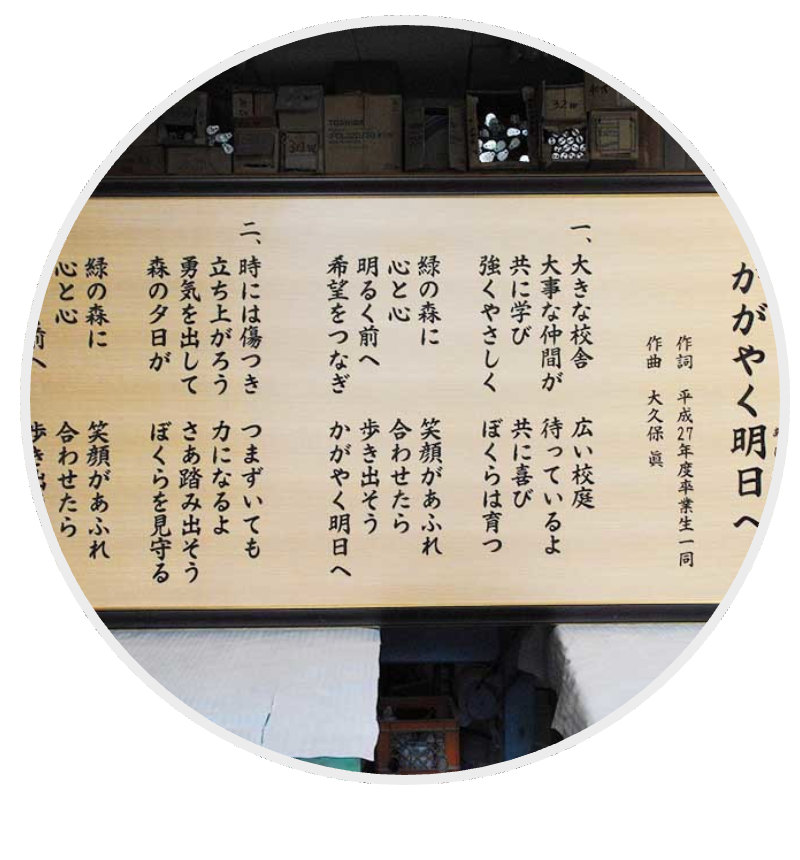 かがやく明日へ
作詞 平成27年度卒業生一同
作曲 大久保 眞
一、大きな校舎 広い校庭
大事な仲間が 待っているよ
共に学び 共に喜び
強くやさしく ぼくらは育つ
緑の森に 笑顔があふれ
心と心 合わせたら
明るく前へ 歩き出そう
希望をつなぎ かがやく明日へ
二、時には傷つき つまずいても
立ち上がろう 力になるよ
勇気を出して さあ踏み出そう
森の夕日が ぼくらを見守る
緑の森に 笑顔があふれ
心と心 合わせたら
前へ 歩き出
TOSHIBA